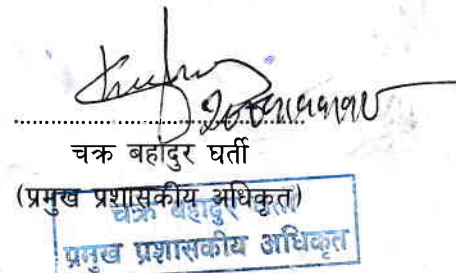 चक्र बहादुर घर्ती
(प्रमुख प्रशासकीय अधिकृत)
चक्र बहादुर घर्ती
प्रमुख प्रशासकीय अधिकृत